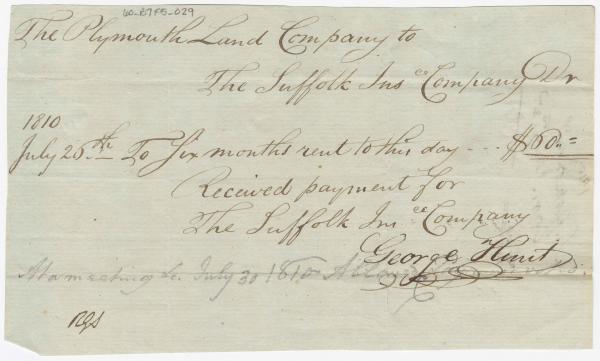 60-B7F5-029
The Plymouth Land Company to
The Suffolk Ins ce Company Dr
1810
July 26th To Six months rent to this day --- $60..=
Received payment for
The Suffolk Ins ce Company
George Hunt
At a meeting &c. July 30 1810
RGS